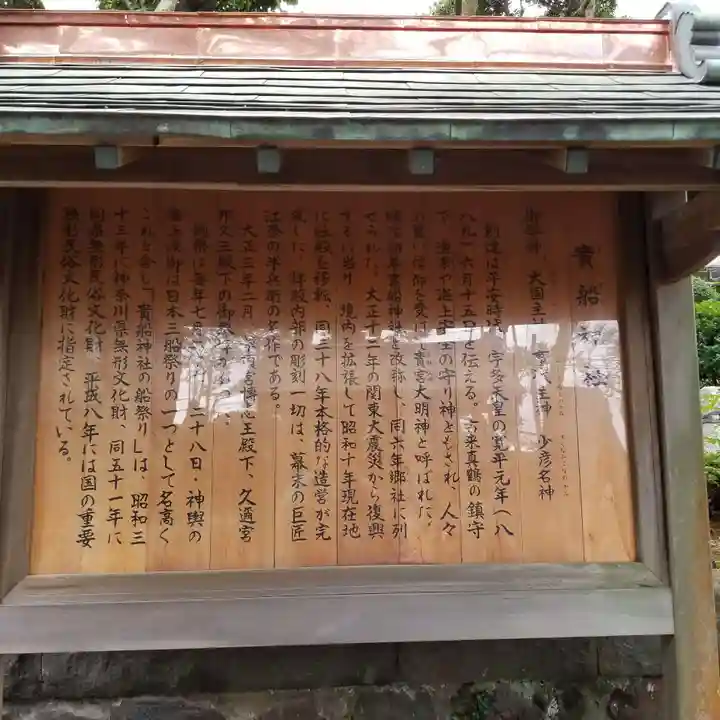 貴船神社
御祭神 大国主神 事代主神 少彦名神
創建は平安時代、宇多天皇の寛平元年(八
八九)六月十五日と伝える。古来真鶴の鎮守
で、漁業や海上安全の守り神ともされ、人々
の篤い信仰を受けし貴宮大明神と呼ばれた。
明治初年貴船神社と改称し、同六年郷社に列
せられた。大正十二年の関東大震災から復興
するに当り、境内を拡張して昭和十年現在地
に社殿を移転、同三十八年本格的な造営が完
成した。拝殿内部の彫刻一切は、幕末の巨匠
江奈の半兵衛の名作である。
大正三年二月、 宮博忠王殿下、久邇宮
邦久王殿下の御
例祭は毎年七月 二十八日・神輿の
海上渡御は日本三船祭りの一つとして名高く
これを含む「貴船神社の船祭り」は、昭和三
十三年に神奈川県無形文化財、同五十一年に
同県無形民俗文化財、平成八年には国の重要
無形民俗文化財に指定されている。